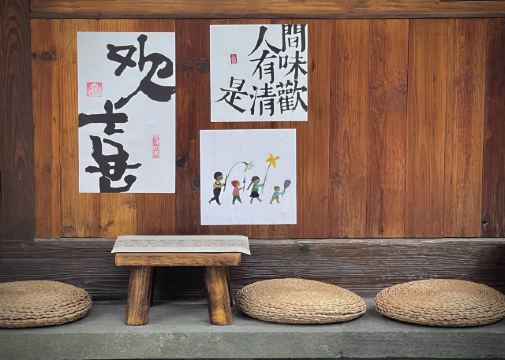 欢喜
人間
有味
是清歡